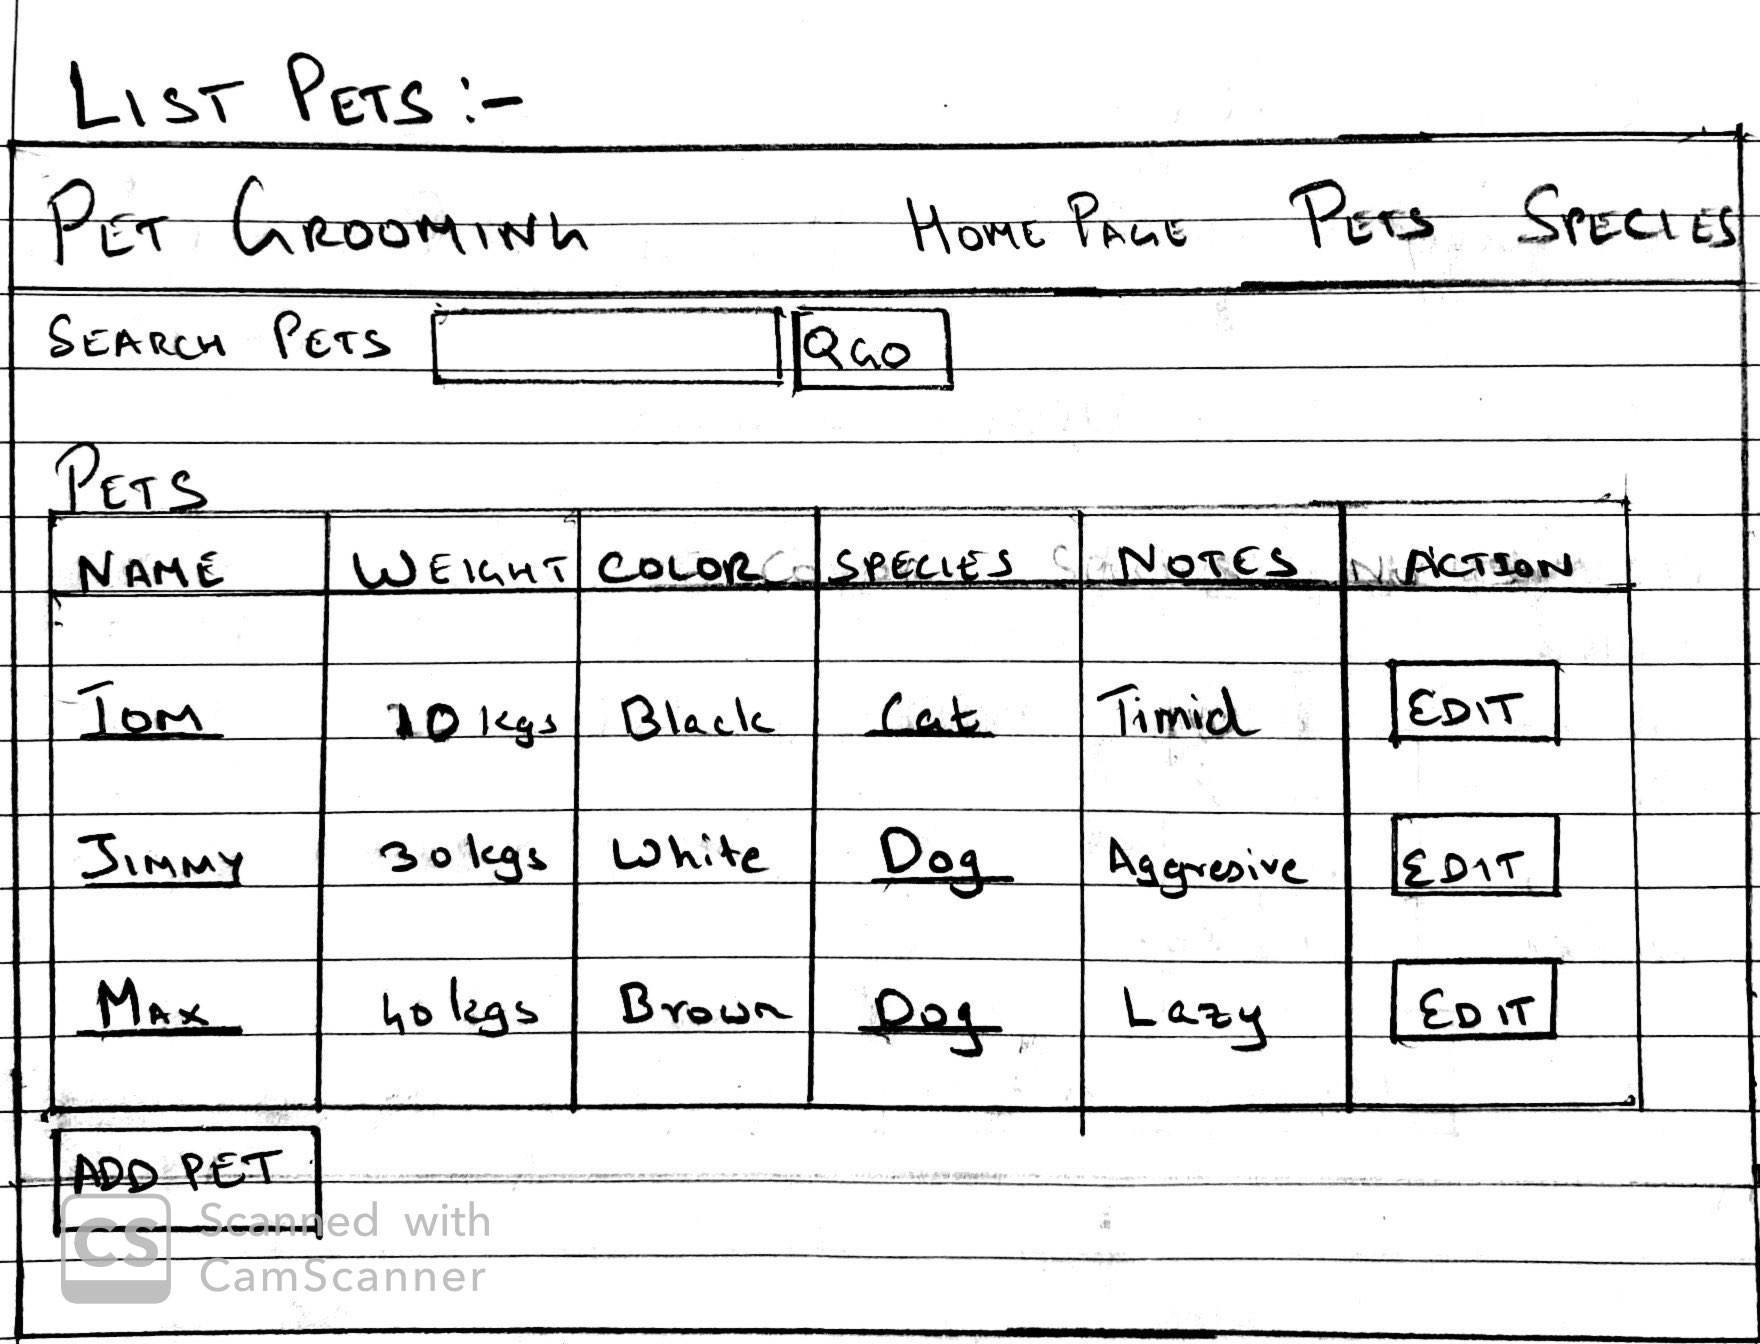 LIST PETS :-
PET GROOMING HOME PAGE PETS SPECIES
SEARCH PETS GO
PETS
NAME WEIGHT COLOR SPECIES NOTES ACTION
TOM 10 kgs Black Cat Timid EDIT
JIMMY 30 kgs White Dog Aggresive EDIT
MAX 40 kgs Brown Dog Lazy EDIT
ADD PET
CS Scanned with
CamScanner